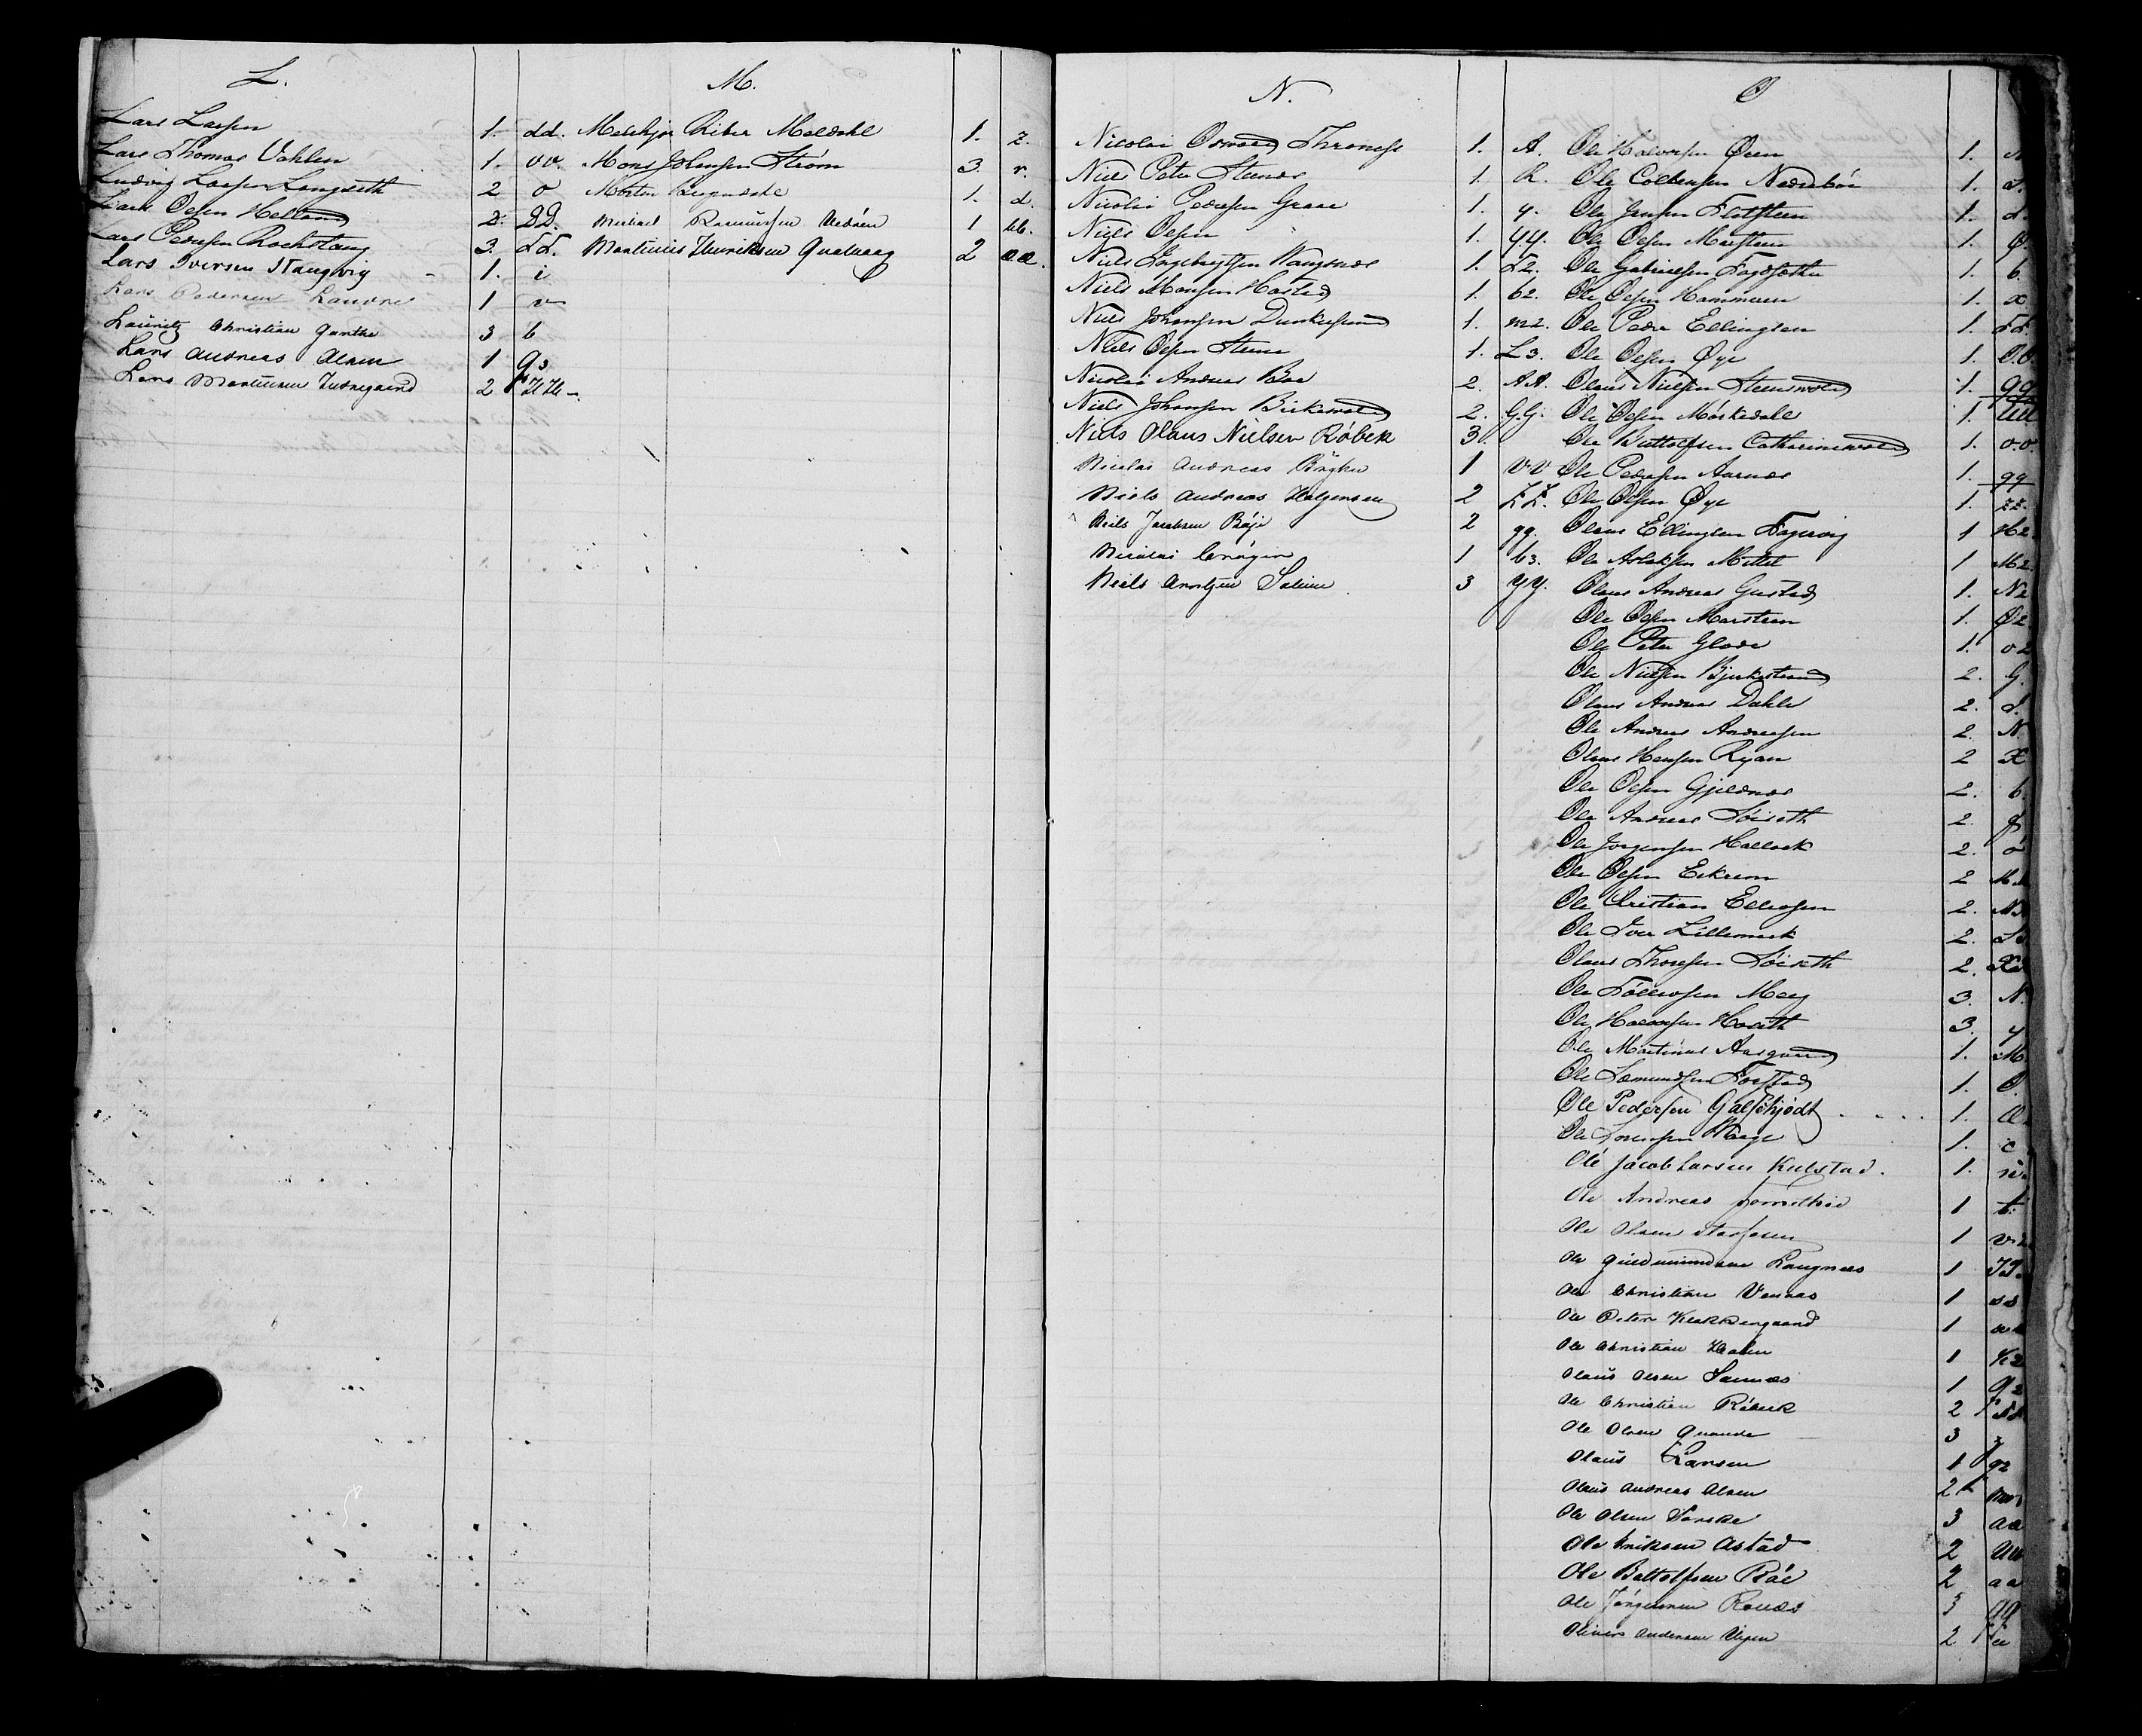 L.
Lars Larsen 1. dd.
Lars Thomas Vahlen 1. vv.
Ludvig Larsen Langseth 2 o
Lars Olsen Helland 2. DD.
Lars Pedersen Rochstang 3.
Lars Iversen Haugvig 1. i
Lars Pedersen 1 v
Lauritz Christian Ganthe 3 b
Lars Andreas Olsen 1 q3
Lars Martinsen 2
M.
Melchjor Riber Meldahl 1. z.
Mons Johansen Strøm 3. r.
Morten 1. d.
Michael Rasmussen 1 bb.
Martinus Henriksen Qualvaag 2 ææ.
N.
Nicolai Oswald 1. A.
Niels Peter Steenes 1. h.
Nicolai Pedersen Graae 1. y.
Niels Olsen 1. YY.
Niels Ingebrigtsen Vaagsnæs 1. F2.
Niels Monsen Harstad 1. b2.
Niels Johansen 1. m2.
Niels Olsen Steene 1. L3.
Nicolai Andreas Boe 2. AA.
Niels Johansen Birkevold 2. GG.
Niels Olaus Nielsen Røbek 3.
Nicolai Andreas 1 vv
Niels Andreas Helgensen 2 ZZ.
Niels Jacobsen Røije 2 qq.
Nicolai 1 b3.
Niels Arntzen 3 YY.
O
Ole Halvorsen Øien 1.
Ole Colbensen Nedrebøe 1.
Ole Jensen Flotsteen 1. d.
Ole Olsen Marsteen 1. Ø.
Ole Gabrielsen Fagersethe 1. b.
Ole Olsen Hammeren 1. x
Ole Peder Ellingsen 1.
Ole Olsen Øye 1. O.O.
Olaus Nielsen Steensvold 1. gg
Ole Olsen Mørkedahl 1. UU
Ole Buttolfsen Catharinavold 1. v.v.
Ole Pedersen Aarnæs 1. qq
Ole Olsen Øye 1. zz.
Olaus Ellingsen Fagervig 1 H2.
Ole Aslaksen Mittet 1 M2.
Olaus Andreas Gustad 1. N2
Ole Olsen Marsteen 1. Ø2
Ole Peter Gloде 1. o2
Ole Nielsen Bjerkestrand 2. G
Olaus Andreas Dahle 2.
Ole Andreas Andreasen 2. N.
Olaus Hansen Ryan 2 X
Ole Olsen Gjeldnæs 2. b.
Ole Andreas Søiseth 2.
Ole Jørgensen Halbock 2. ø
Ole Olsen Eikrem 2
Ole Cristian Ellevsen 2.
Ole Iver Lillemork 2.
Olaus Thoresen Søiseth 2.
Ole Follevsen Meeg 3. N.
Ole Halvorsen Holseth 3. y
Ole Martinus Aasgaard 1. M
Ole Sæmundsen Forstad 1. O.
Ole Pedersen Galschjødt 1.
Ole Sørensen Waage 1. c
Ole Jacob Larsen Kulstad. 1.
Ole Andreas 1 t.
Ole Olsen 1
Ole Gudmundsen Langnæs 1
Ole Christian Venaas 1 ss
Ole Peter Klokkergaard 1
Ole Christian Holen 1 K2
Olaus Olsen Sannæs 1 Q2
Ole Christian Røbek 2
Ole Olsen Quande 3 z
Olaus Larsen 1 q2
Olaus Andreas Olsen 2
Ole Olsen Torske 3 aa
Ole Eriksen Astad 2 UU
Ole Bottolfsen Røe 2 aa
Ole Jørgensen 3 qq
Olivers Andersen 2